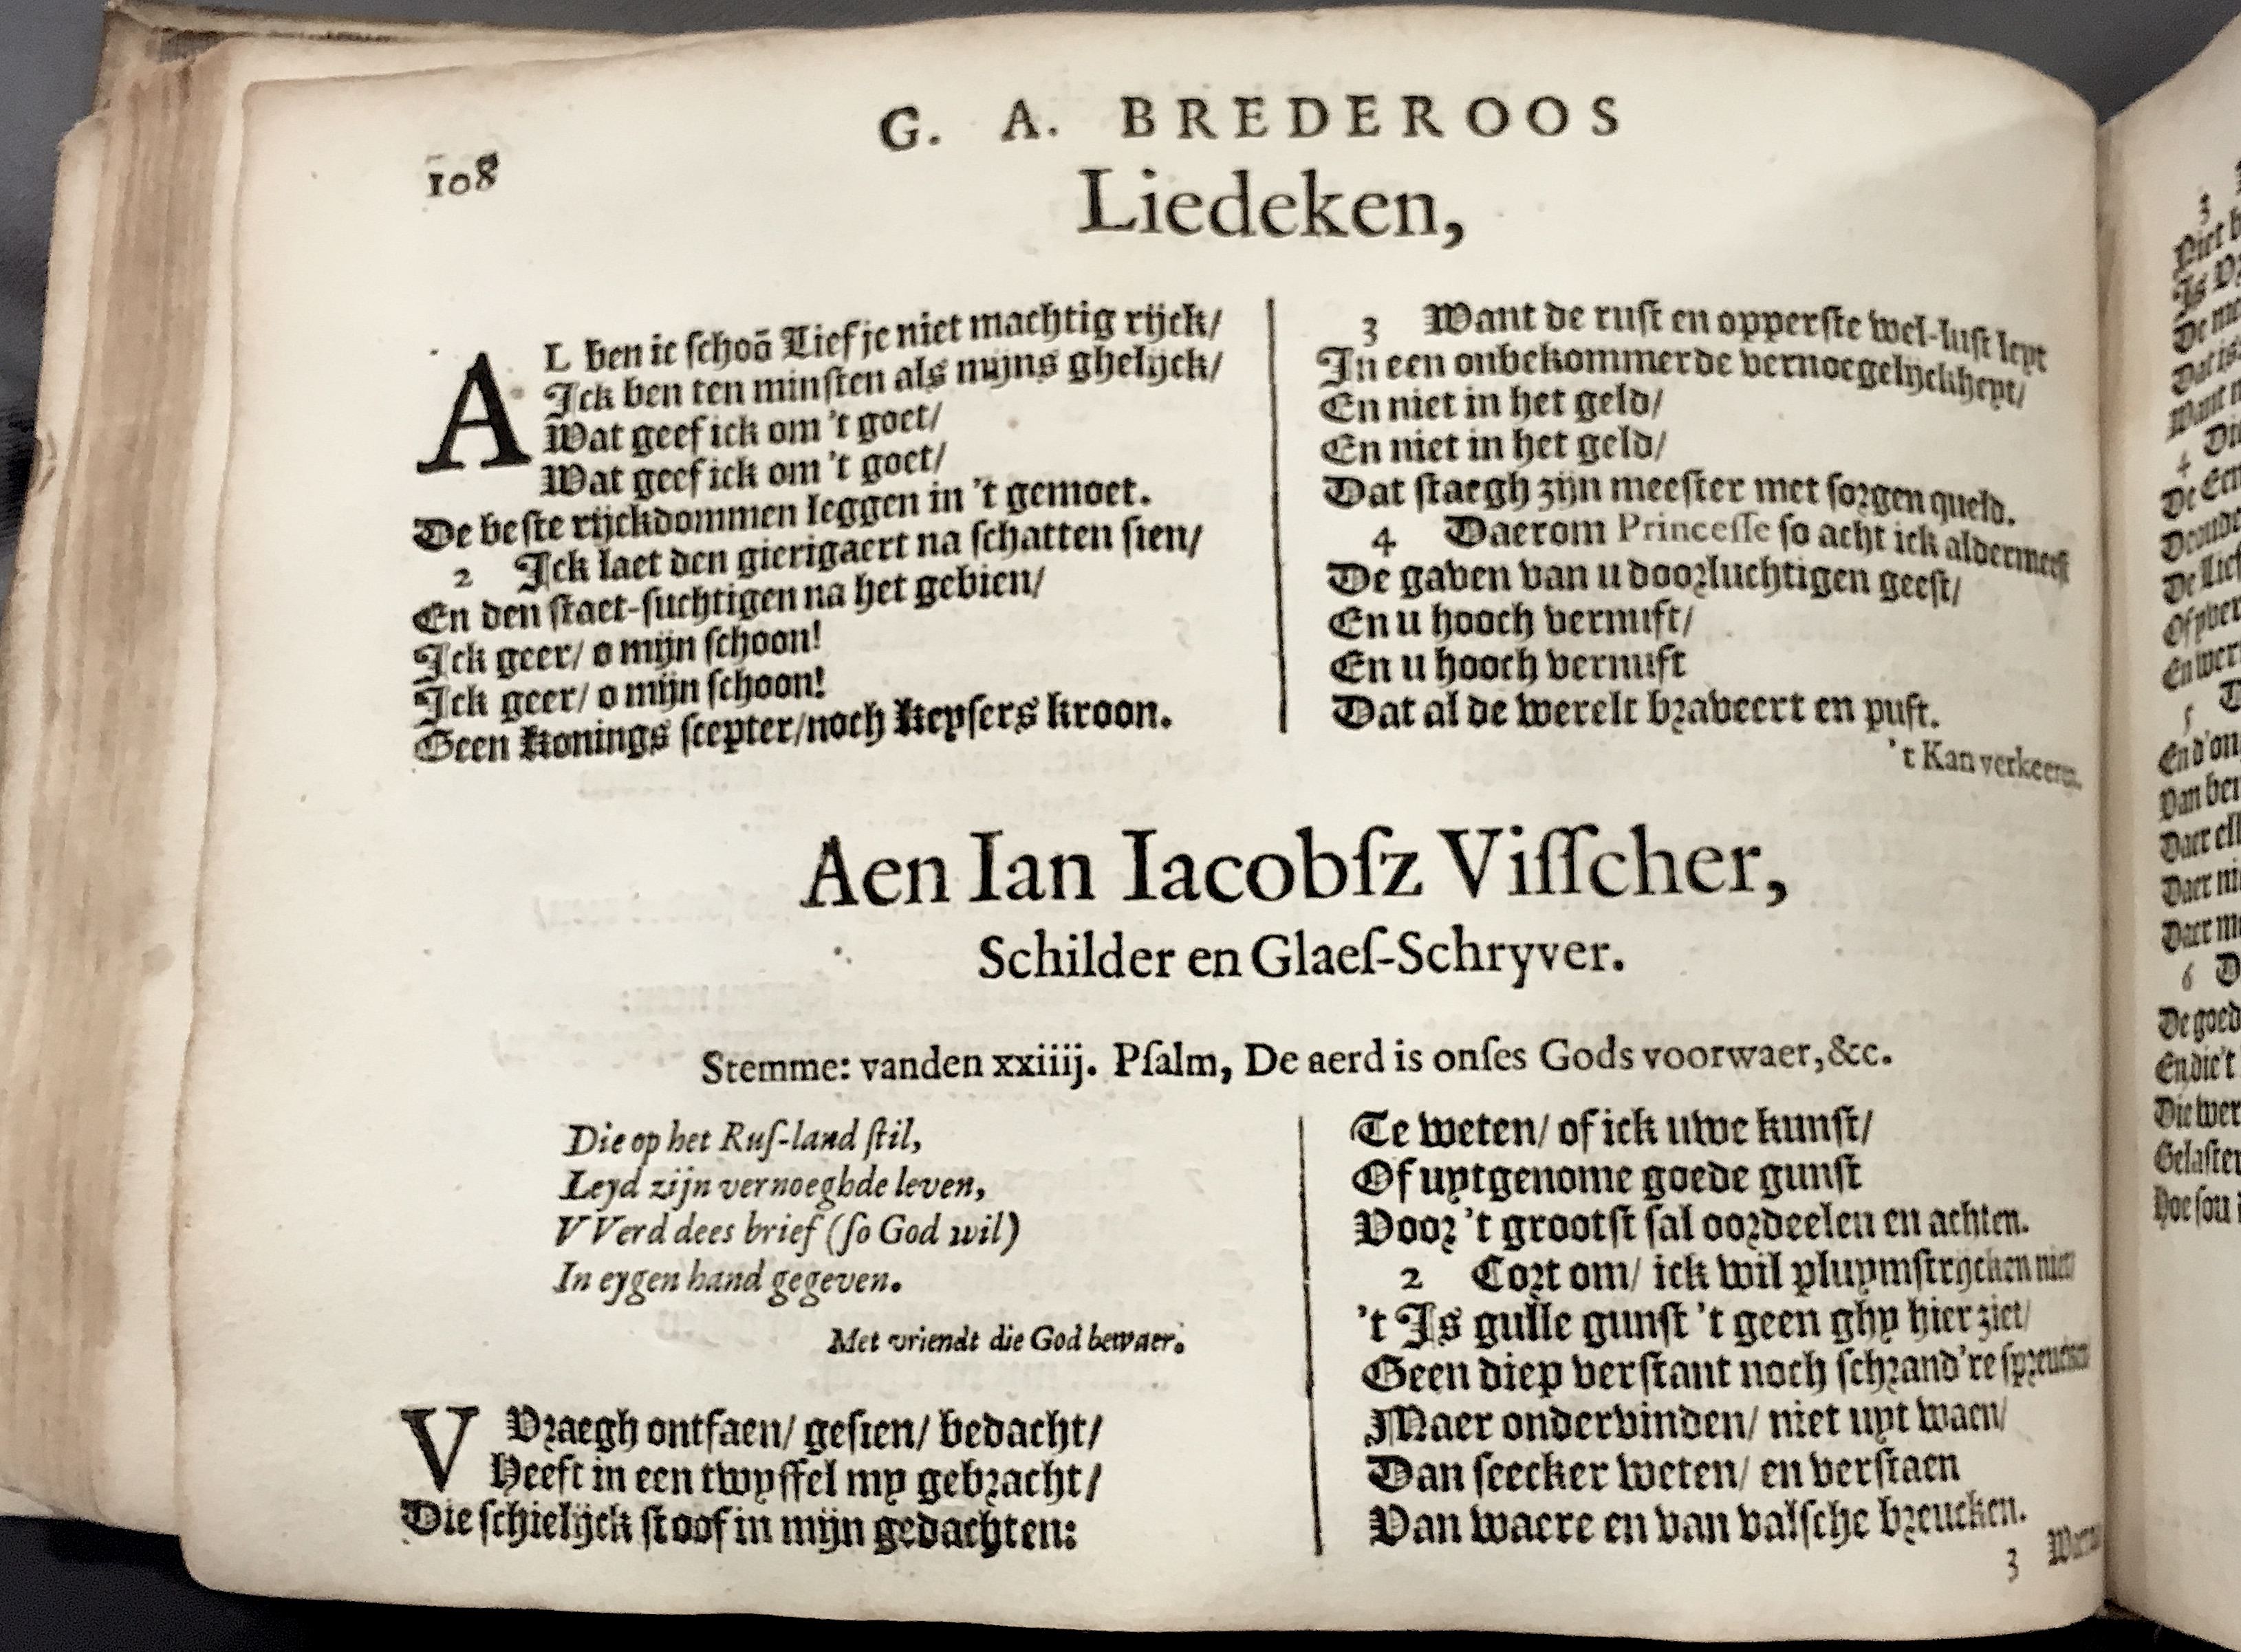 G. A. BREDEROOS
108
Liedeken,
AL ben ic schoõ Liefje niet machtig rijck/
Ick ben ten minsten als mijns ghelijck/
Wat geef ick om 't goet/
Wat geef ick om 't goet/
De beste rijckdommen leggen in 't gemoet.
2 Ick laet den gierigaert na schatten sien/
En den staet-suchtigen na het gebien/
Ick geer/ o mijn schoon!
Ick geer/ o mijn schoon!
Geen Konings scepter/noch Keysers kroon.
3 Want de rust en opperste wel-lust leyt
In een onbekommerde vernoegelijckheyt/
En niet in het geld/
En niet in het geld/
Dat staegh zijn meester met sorgen queld.
4 Daerom Princesse so acht ick aldermeest
De gaven van u doorluchtigen geest/
En u hooch vernuft/
En u hooch vernuft
Dat al de werelt braveert en puft.
't Kan verkeeren.
Aen Ian Iacobsz Visscher,
Schilder en Glaes-Schryver.
Stemme: vanden xxiiij. Psalm, De aerd is onses Gods voorwaer, &c.
Die op het Rus-land stil,
Leyd zijn vernoeghde leven,
VVerd dees brief (so God wil)
In eygen hand gegeven.
Met vriendt die God bewaer.
V Vraegh ontfaen/ gesien/ bedacht/
Heeft in een twyffel my gebracht/
Die schielijck stoof in mijn gedachten:
Te weten/ of ick uwe kunst/
Of uytgenome goede gunst
Voor 't grootst sal oordeelen en achten.
2 Cort om/ ick wil pluymstrijcken niet
't Is gulle gunst 't geen ghy hier ziet/
Geen diep verstant noch schrand're spreucken
Maer ondervinden/ niet uyt waen/
Dan seecker weten/ en verstaen
Van waere en van valsche breucken.
3
3
Niet
Is
De
Dat is
Want
4
De
De
De
En
5
En d'on
Van
Daer
Daer
Daer
6
De goed
En die't
Die wer
Gelaster
Hoe sou